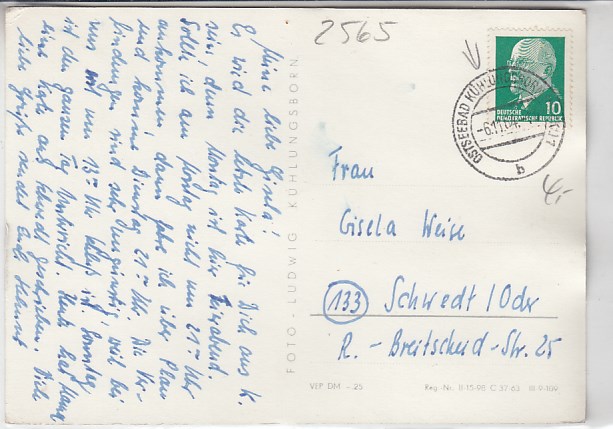 2565
Meine liebe Gisela!
Es wird die letzte Karte für Dich aus K.
sein, denn Montag ist hier Feierabend.
Sollte ich am Montag nicht um 21⁰⁰ Uhr
ankommen, dann fahre ich über Plau
und komme Dienstag 21⁰⁰ Uhr. Die Ver-
bindungen sind sehr ungünstig, weil bei
uns erst um 13⁰⁰ Uhr Schluß ist. Sonntag
ist den ganzen Tag Unterricht. Heute hat
eine Karte aus geschrieben. Viele
liebe Grüße sendet Dich Helmut
FOTO - LUDWIG KÜHLUNGSBORN
DEUTSCHE
DEMOKRATISCHE REPUBLIK
10
OSTSEEBAD KÜHLUNGSBORN
-6.11.64
b
4,-
Frau
Gisela Weise
133 Schwedt/Oder
R.-Breitscheid-Str. 25
VEP DM -.25
Reg.-Nr. II-15-98 C 37 63 III-9-109